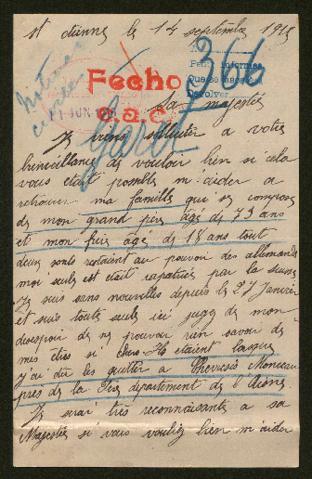 st etienne le 14 septembre 1915
366
Pedir informes
Que se
Devolver
Fecho
C.a.c.
11 JUN
Sa majesté
Je viens solliciter a votre
bienveillance de vouloir bien si cela
vous etait possible m'aider a
retrouver ma famille qui se compose
de mon grand père agé de 73 ans
et mon frère âgé de 18 ans tout
deux sont restaient au pouvoir des allemands
moi seule est etait rapatriée par la suisse
Je suis sans nouvelles depuis le 27 Janvier
et suis toute seule ici jugez de mon
desespoir de ne pouvoir rien savoir de
mes chers si chers Ils etaient lorsque
j'ai du les quitter a Chevresis Monceau
près de la Fère departement de l'Aisne
Je serai très reconnaissante a sa
Majestée si vous vouliez bien m'aider